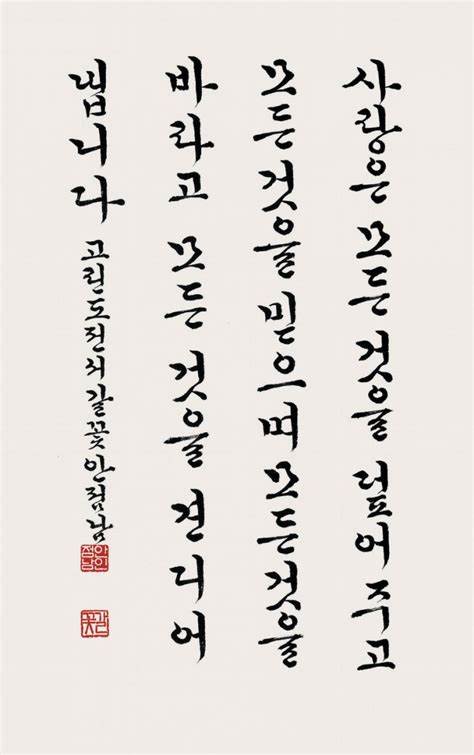 사랑은 모든 것을 덮어 주고
모든 것을 믿으며 모든 것을
바라고 모든 것을 견디어
냅니다 고린도전서 갈꽃 안점남